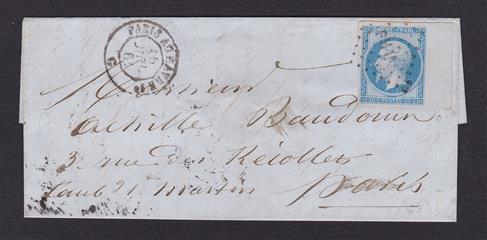 PARIS
EMPIRE FRANC
20C POSTES 20C
Monsieur
Achille Baudouin
3 rue des Récollets
faub St martin Paris